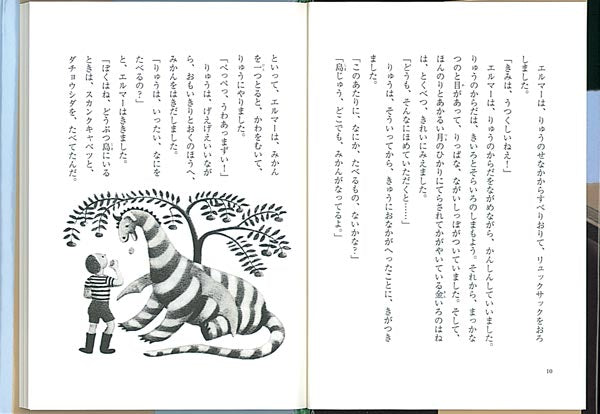 エルマーは、りゅうのせなかからすべりおりて、リュックサックをおろ
しました。
「きみは、うつくしいねえ！」
エルマーは、りゅうのからだをながめながら、かんしんしていいました。
りゅうのからだは、きいろとそらいろのしまもよう。それから、まっかな
つのと目があって、りっぱな、ながいしっぽがついていました。そして、
ほんのりとあかるい月のひかりにてらされてかがやいている金いろのはね
は、とくべつ、きれいにみえました。
「どうも、そんなにほめていただくと……」
りゅうは、そういってから、きゅうにおなかがへったことに、きがつき
ました。
「このあたりに、なにか、たべるもの、ないかな？」
「島じゅう、どこでも、みかんがなってるよ。」
10
といって、エルマーは、みかん
を一つとると、かわをむいて、
りゅうにやりました。
「ぺっぺっ、うわあっまずい！」
りゅうは、げえげえいいなが
ら、おもいきりとおくのほうへ、
みかんをはきだしました。
「りゅうは、いったい、なにを
たべるの？」
と、エルマーはききました。
「ぼくはね、どうぶつ島にいる
ときは、スカンクキャベツと、
ダチョウシダを、たべてたんだ。